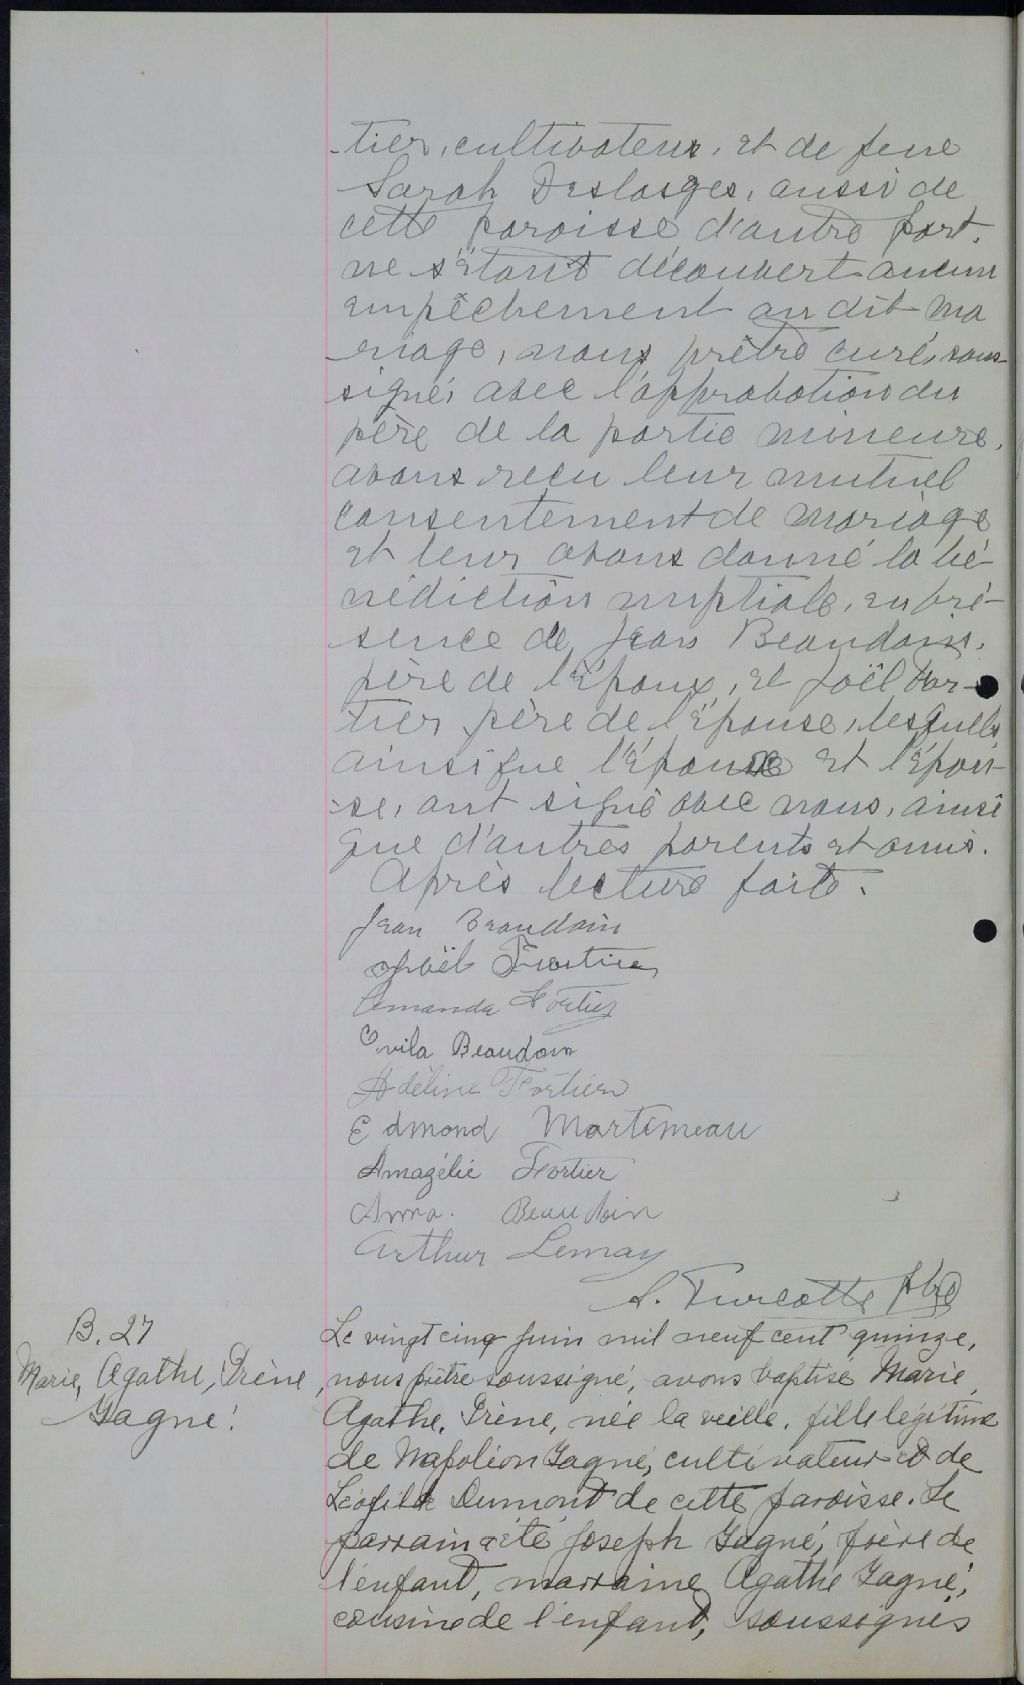 -tier, cultivateur, et de feue
Sarah Deslarges, aussi de
cette paroisse d'autre part.
ne s'étant découvert aucun
empêchement au dit ma
riage, nous prêtre curé, sous-
signé, avec l'approbation du
père de la partie mineure,
avons reçu leur mutuel
consentement de mariage
et leur avons donné la bé-
nédiction nuptiale, en pré-
sence de Jean Beaudoin,
père de l'époux, et Joël For-
tier père de l'épouse, lesquels
ainsi que l'époux et l'épou-
-se, ont signé avec nous, ainsi
que d'autres parents et amis.
Après lecture faite.
Jean Beaudoin
Joël Fortier
Amanda Fortier
Ovila Beaudoin
Adéline Fortier
Edmond Martineau
Amazélie Fortier
Anna. Beaudoin
Arthur Lemay
A. Turcotte ptre
B. 27
Marie, Agathe, Irène
Gagné.
Le vingt cinq juin mil neuf cent quinze,
nous prêtre soussigné, avons baptisé Marie,
Agathe, Irène, née la veille, fille légitime
de Napoléon Gagné, cultivateur et de
Léofilde Dumont de cette paroisse. Le
parrain a été Joseph Gagné, frère de
l'enfant, marraine Agathe Gagné,
cousine de l'enfant, soussignés